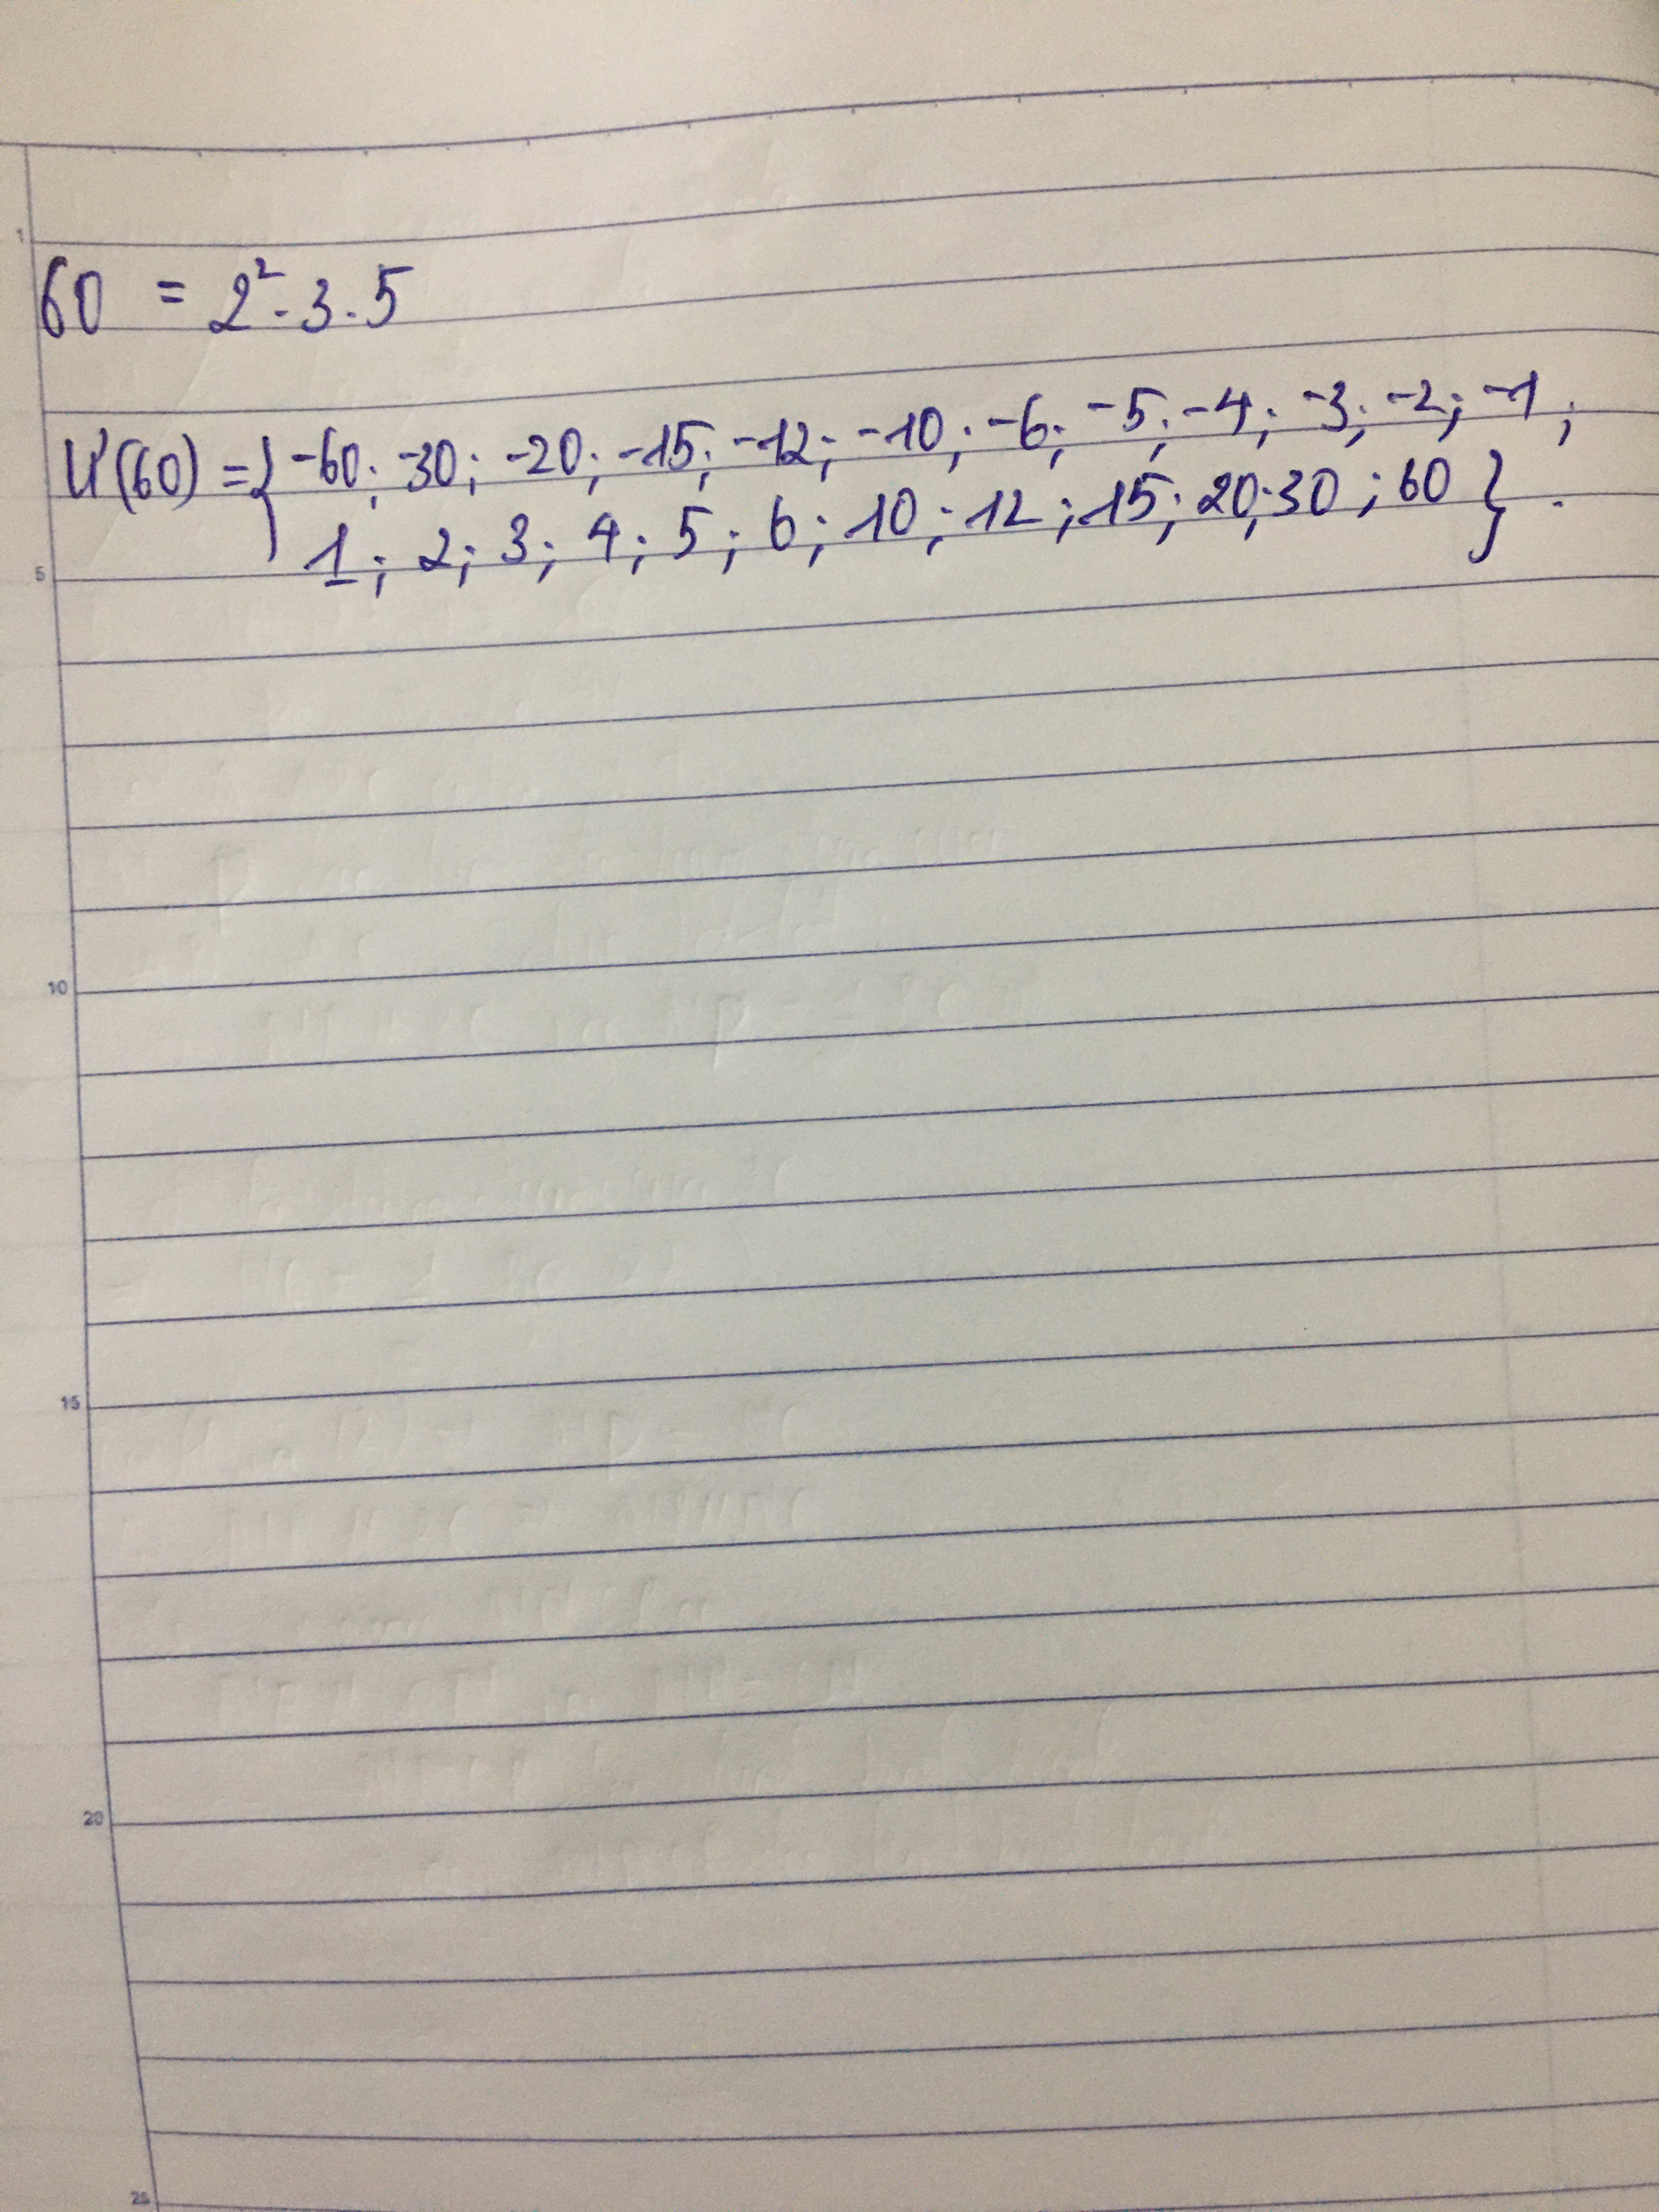 1
60 = 2².3.5
Ư(60) = { -60; -30; -20; -15; -12; -10; -6; -5; -4; -3; -2; -1;
1; 2; 3; 4; 5; 6; 10; 12; 15; 20; 30; 60 }.
5
10
15
20
25